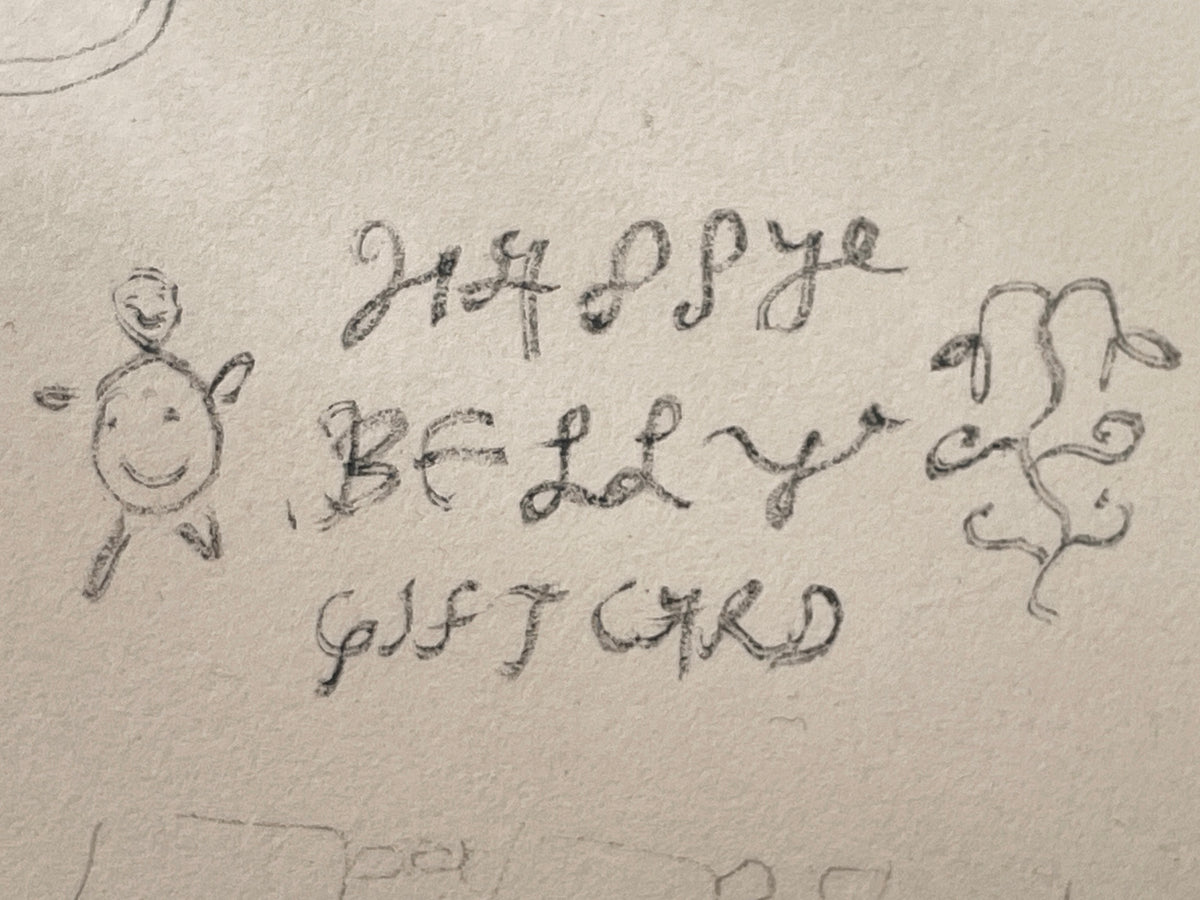 HAPPYe
BELLY
GIFT CARD